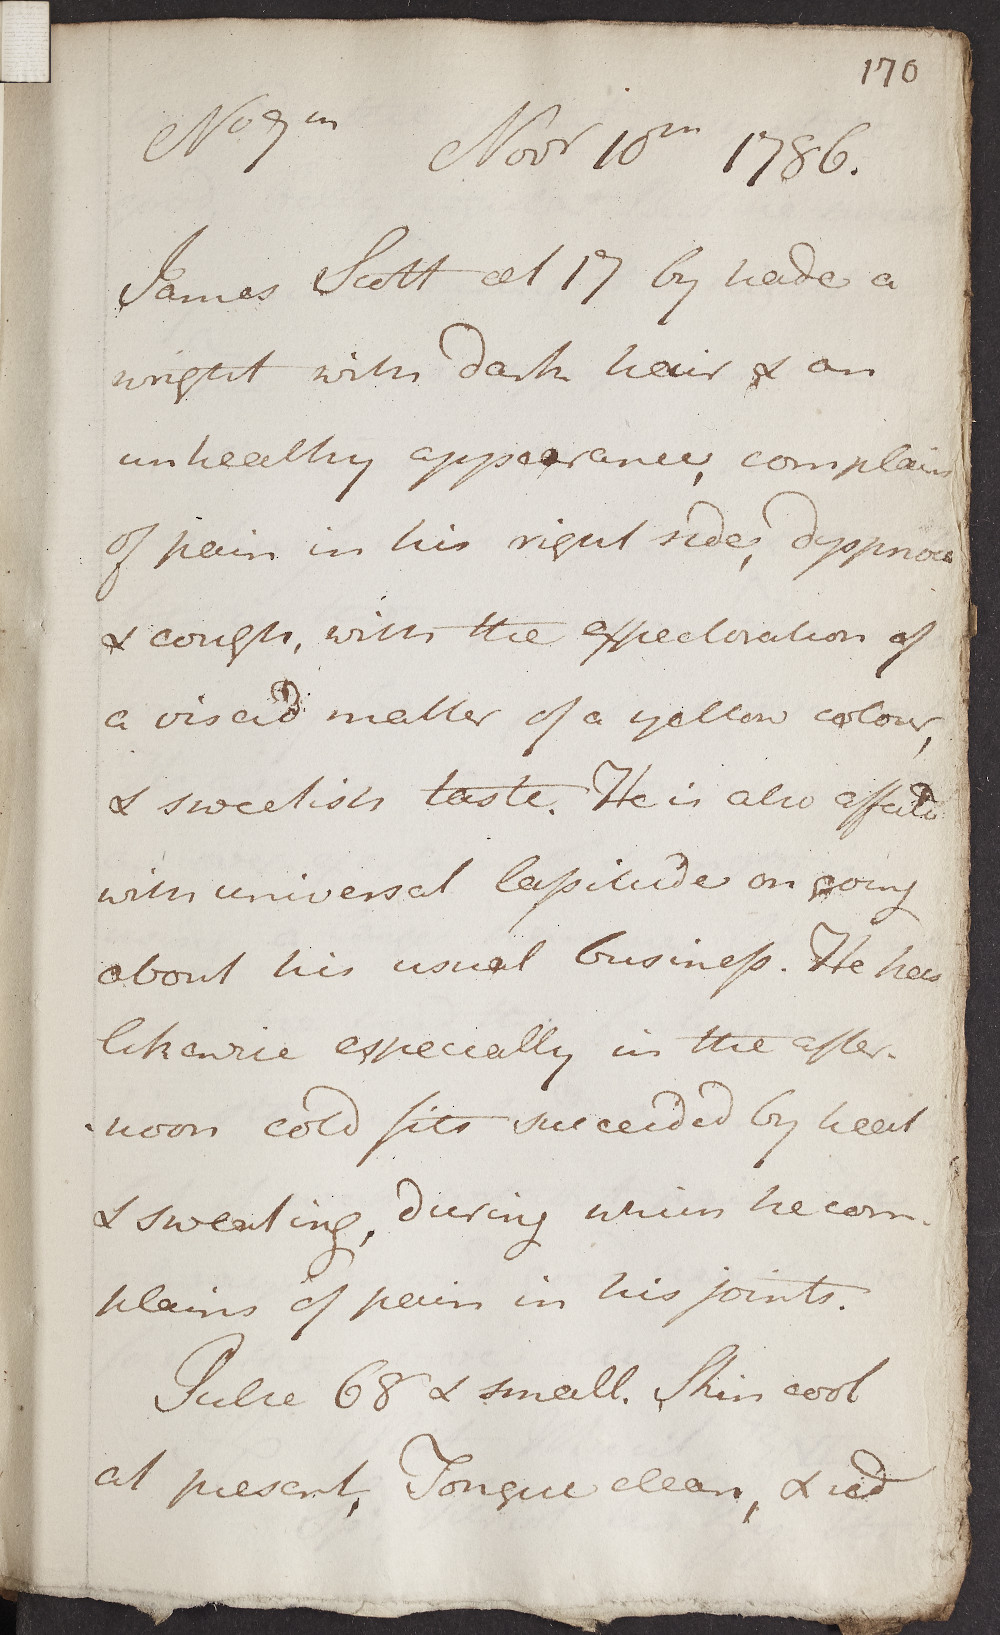 170
No 7th Novr 10th 1786.
James Scott æt 17 by trade a
wright with dark hair & an
unhealthy appearance, complains
of pain in his right side, dyspnœa
& cough, with the expectoration of
a viscid matter of a yellow colour,
& sweetish taste. He is also affected
with universal lassitude on going
about his usual business. He has
likewise especially in the after-
noon cold fits succeeded by heat
& sweating, during which he com-
plains of pain in his joints.
Pulse 68 & small. Skin cool
at present, Tongue clean, & red